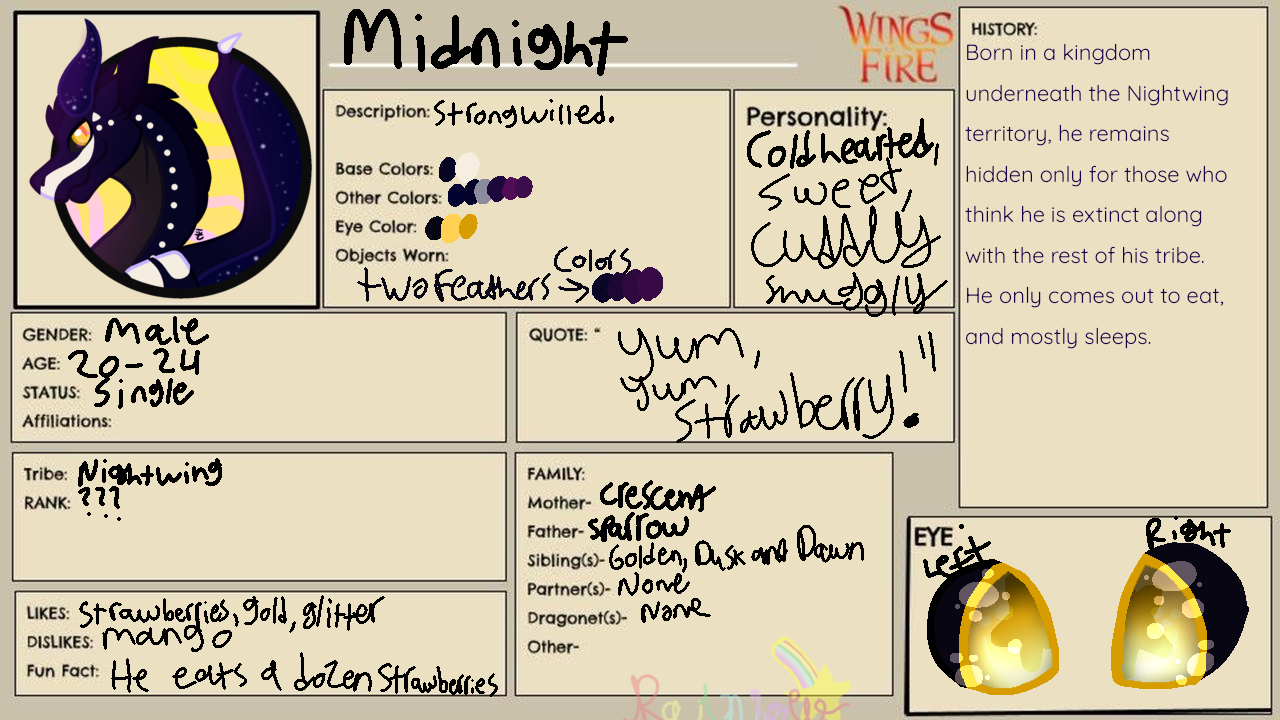 Midnight
WINGS
OF
FIRE
Description: Strongwilled.
Base Colors:
Other Colors:
Eye Color:
Objects Worn:
Colors
two Feathers
Personality:
Coldhearted,
sweet,
cuddly
snuggly
HISTORY:
Born in a kingdom
underneath the Nightwing
territory, he remains
hidden only for those who
think he is extinct along
with the rest of his tribe.
He only comes out to eat,
and mostly sleeps.
GENDER: Male
AGE: 20-24
STATUS: Single
Affiliations:
QUOTE: “ Yum,
yum,
strawberry!"
Tribe: Nightwing
RANK: ???
...
LIKES: Strawberries, gold, glitter
DISLIKES: mango
Fun Fact: He eats a dozen strawberries
FAMILY:
Mother- Crescent
Father- sparrow
Sibling(s)- Golden, Dusk and Dawn
Partner(s)- None
Dragonet(s)- None
Other-
EYE:
Left
Right